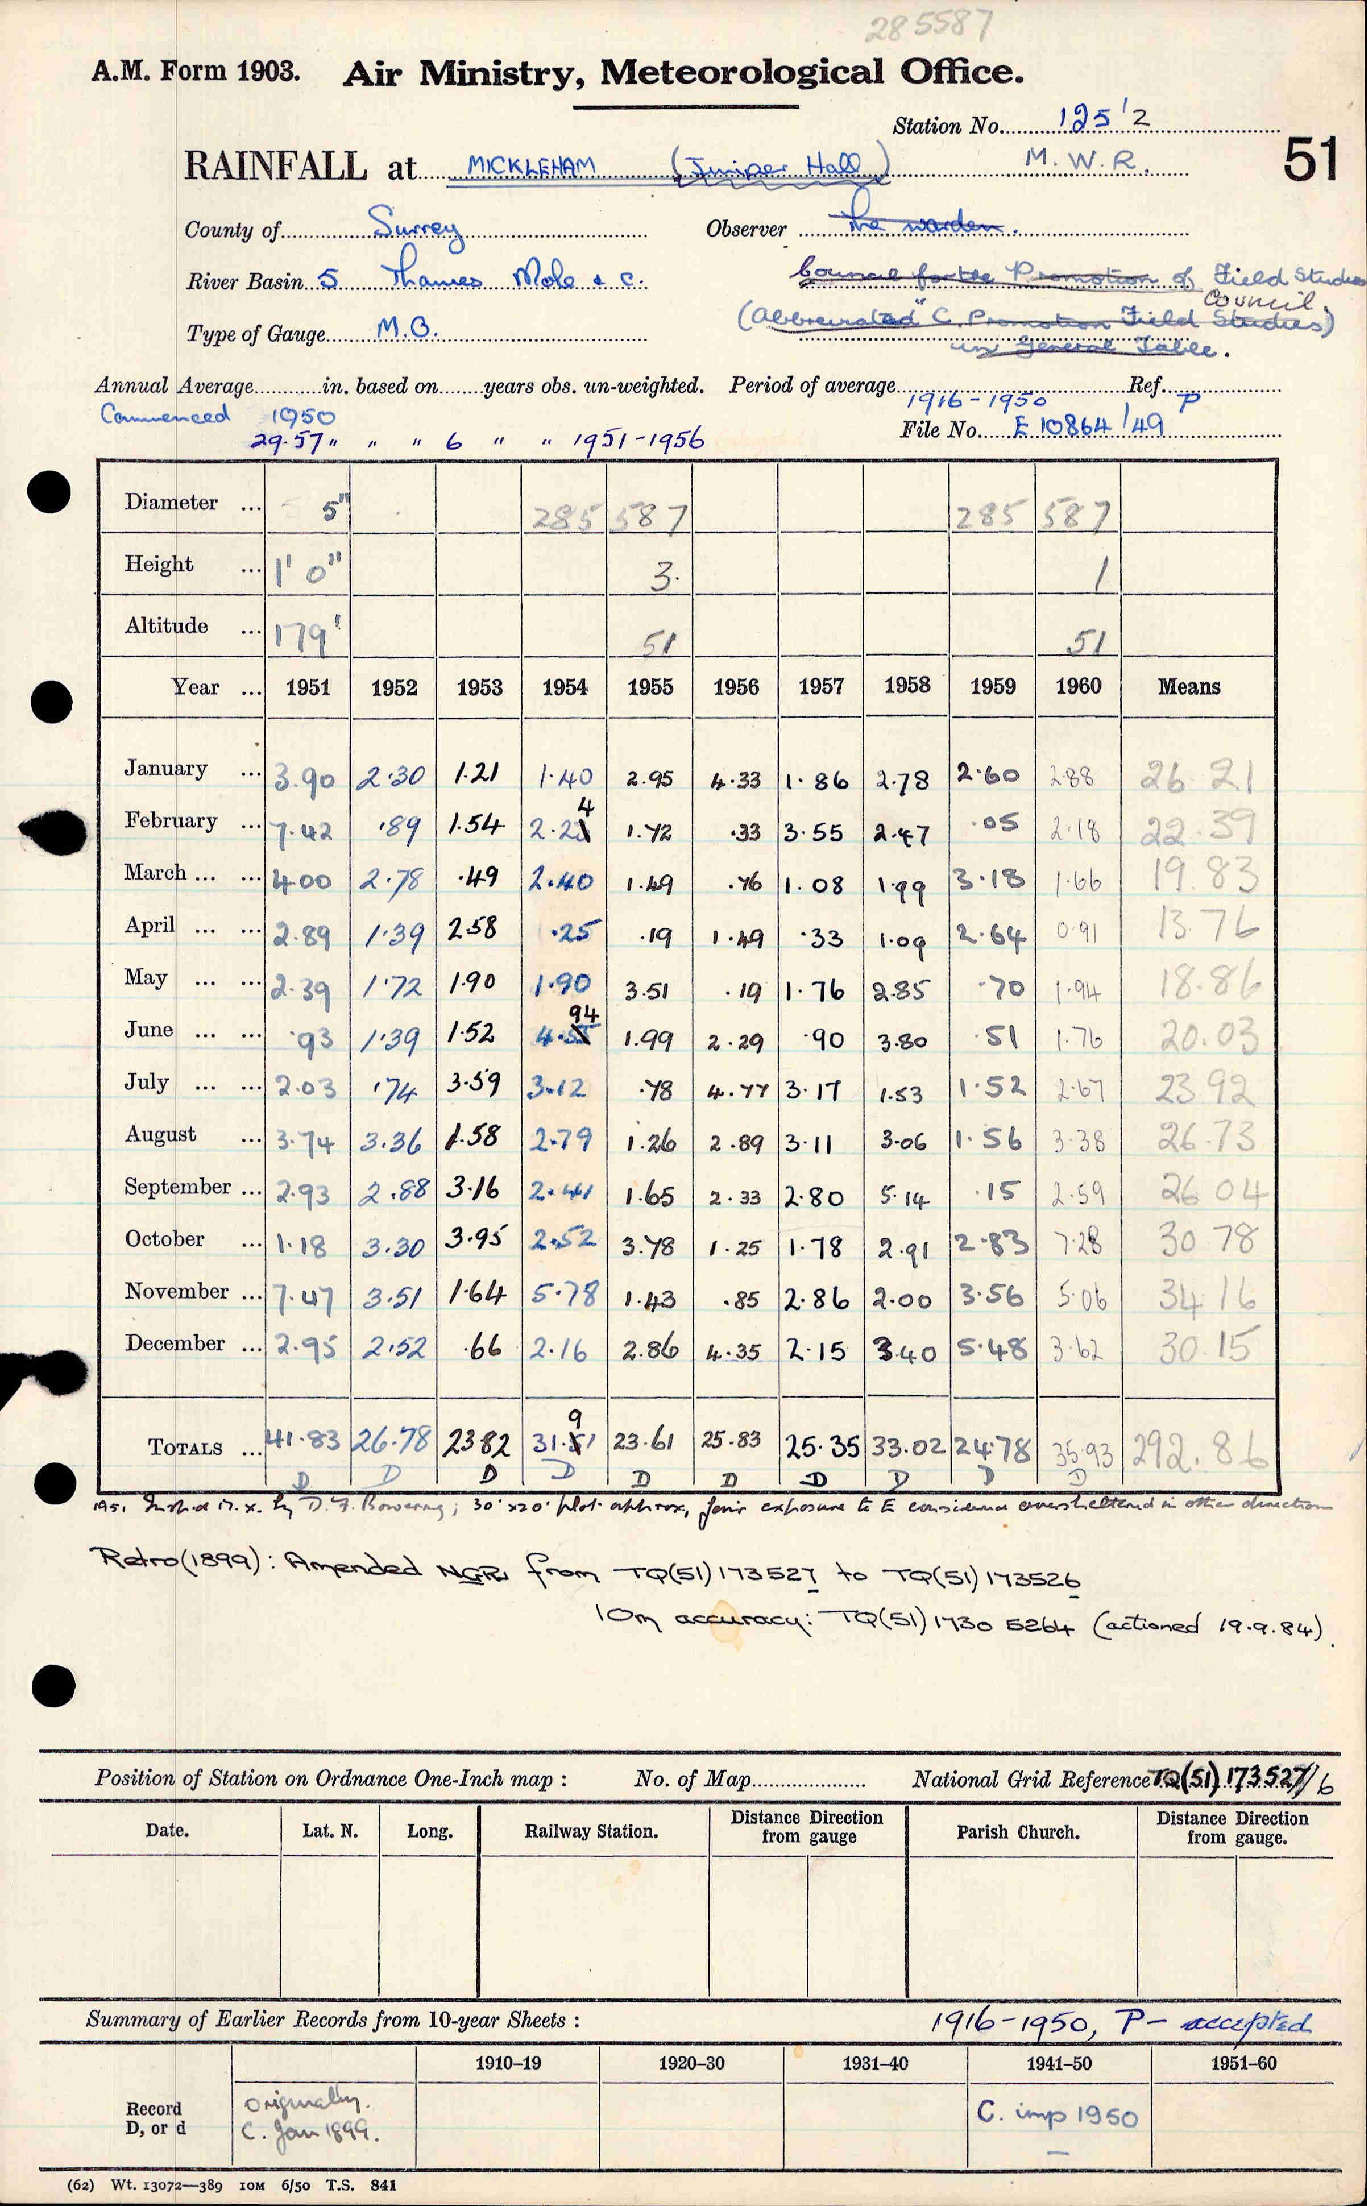 285587
A.M. Form 1903. Air Ministry, Meteorological Office.
Station No. 125 1/2
RAINFALL at MICKLEHAM (Juniper Hall) M.W.R. 51
County of Surrey Observer The warden.
River Basin 5 Thames Mole & C. Council for the Promotion of Field Studies
Council.
(Abbreviated "C. Promotion Field Studies)
Type of Gauge M.O. in General Table.
Annual Average in. based on years obs. un-weighted. Period of average 1916-1950 Ref. P
Commenced 1950 File No. E 10864/49
29.57 " " " 6 " " 1951-1956
Diameter ... 5" 285 587 285 587
Height ... 1' 0" 3. 1
Altitude ... 179' 51 51
Year ... 1951 1952 1953 1954 1955 1956 1957 1958 1959 1960 Means
January ... 3.90 2.30 1.21 1.40 2.95 4.33 1.86 2.78 2.60 2.88 26.21
4
February ... 7.42 .89 1.54 2.21 1.72 .33 3.55 2.47 .05 2.18 22.39
March ... ... 4.00 2.78 .49 2.40 1.49 .76 1.08 1.99 3.18 1.66 19.83
April ... ... 2.89 1.39 2.58 .25 .19 1.49 .33 1.09 2.64 0.91 13.76
May ... ... 2.39 1.72 1.90 1.90 3.51 .19 1.76 2.85 .70 1.94 18.86
94
June ... ... .93 1.39 1.52 4.55 1.99 2.29 .90 3.80 .51 1.76 20.03
July ... ... 2.03 .74 3.59 3.12 .78 4.77 3.17 1.53 1.52 2.67 23.92
August ... 3.74 3.36 1.58 2.79 1.26 2.89 3.11 3.06 1.56 3.38 26.73
September ... 2.93 2.88 3.16 2.41 1.65 2.33 2.80 5.14 .15 2.59 26.04
October ... 1.18 3.30 3.95 2.52 3.78 1.25 1.78 2.91 2.83 7.28 30.78
November ... 7.47 3.51 1.64 5.78 1.43 .85 2.86 2.00 3.56 5.06 34.16
December ... 2.95 2.52 .66 2.16 2.86 4.35 2.15 3.40 5.48 3.62 30.15
9
TOTALS ... 41.83 26.78 23.82 31.51 23.61 25.83 25.35 33.02 24.78 35.93 292.86
D D D D D D D D D D
1951 Insp'd 17.x. by D.F. Bowering; 30'x20' plot approx, fair exposure to E considered oversheltered in other direction
Retro(1899): Amended NGR from TQ(51)173527 to TQ(51)173526
10m accuracy: TQ(51)1730 5264 (actioned 19.9.84).
Position of Station on Ordnance One-Inch map : No. of Map National Grid Reference TQ(51) 173527/6
Date. Lat. N. Long. Railway Station. Distance from gauge Direction Parish Church. Distance Direction from gauge.
Summary of Earlier Records from 10-year Sheets : 1916-1950, P- accepted
1910–19 1920–30 1931–40 1941–50 1951–60
Record D, or d originally. C. Jan 1899. C. imp 1950
—
(62) Wt. 13072—389 10M 6/50 T.S. 841